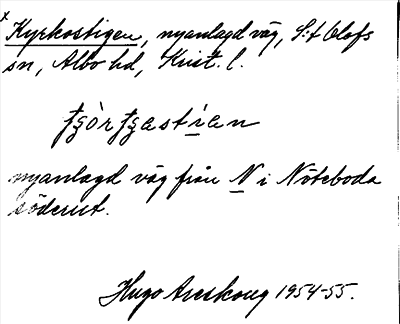 x Kyrkostigen, nyanlagd väg, S:t Olofs
sn, Albo hd, Krist. l.
nyanlagd väg från N i Nöteboda
söderut.
Hugo Areskoug 1954-55.